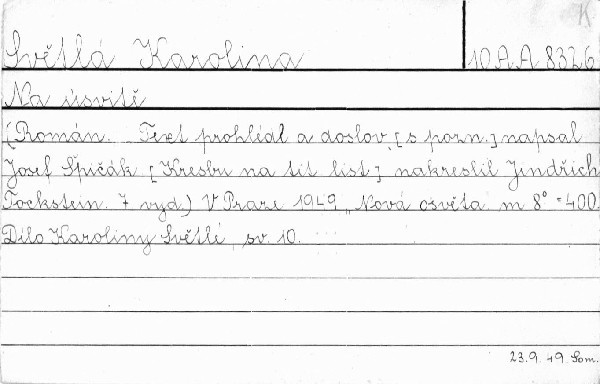 K
Světlá Karolina 10 A A 8326
Na úsvitě
(Román. Text prohlédl a doslov [s pozn.] napsal
Josef Špičák. [Kresbu na tit. list] nakreslil Jindřich
Fockstein. 7. vyd.) V Praze 1949, Nová osvěta m 8° -400.
Dílo Karoliny Světlé, sv. 10.
23.9.49 Som.